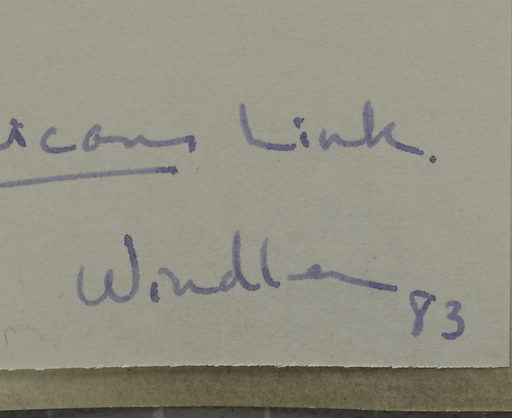 icans Link.
Windler 83